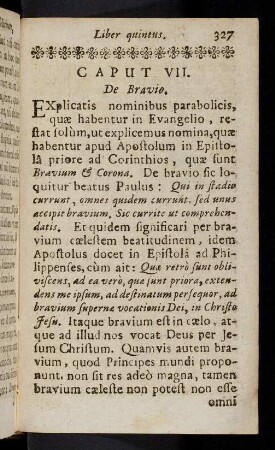 Liber quintus. 327
CAPUT VII.
De Bravio.
EXplicatis nominibus parabolicis,
quæ habentur in Evangelio, re-
stat solùm, ut explicemus nomina, quæ
habentur apud Apostolum in Epistо-
lâ priore ad Corinthios, quæ sunt
Bravium & Corona. De bravio sic lo-
quitur beatus Paulus: Qui in stadio
currunt, omnes quidem currunt. sed unus
accipit bravium. Sic currite ut comprehen-
datis. Et quidem significari per bra-
vium cælestem beatitudinem, idem
Apostolus docet in Epistolâ ad Phi-
lippenses, cùm ait: Quæ retrò sunt obli-
viscens, ad ea verò, quæ sunt priora, exten-
dens me ipsum, ad destinatum persequor, ad
bravium supernæ vocationis Dei, in Christo
Jesu. Itaque bravium est in cælo, at-
que ad illud nos vocat Deus per Je-
sum Christum. Quamvis autem bra-
vium, quod Principes mundi propo-
nunt. non sit res adeò magna, tamen
bravium cæleste non potest non esse
omni